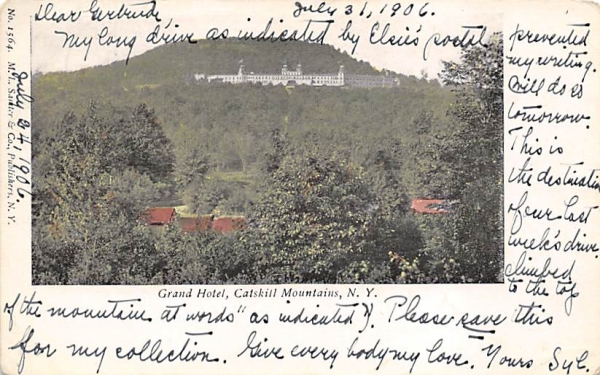 Dear Gertrude, July 31, 1906.
My long drive as indicated by Elsie's postal
prevented
my writing.
Will do so
tomorrow.
This is
the destination
of our last
week's drive.
Climbed
to the top
of the mountain at words "as indicated". Please save this
for my collection. Give every body my love. Yours Syl.
July 24, 1906.
No. 1564. M. L. Sadler & Co., Publishers, N. Y.
Grand Hotel, Catskill Mountains, N. Y.